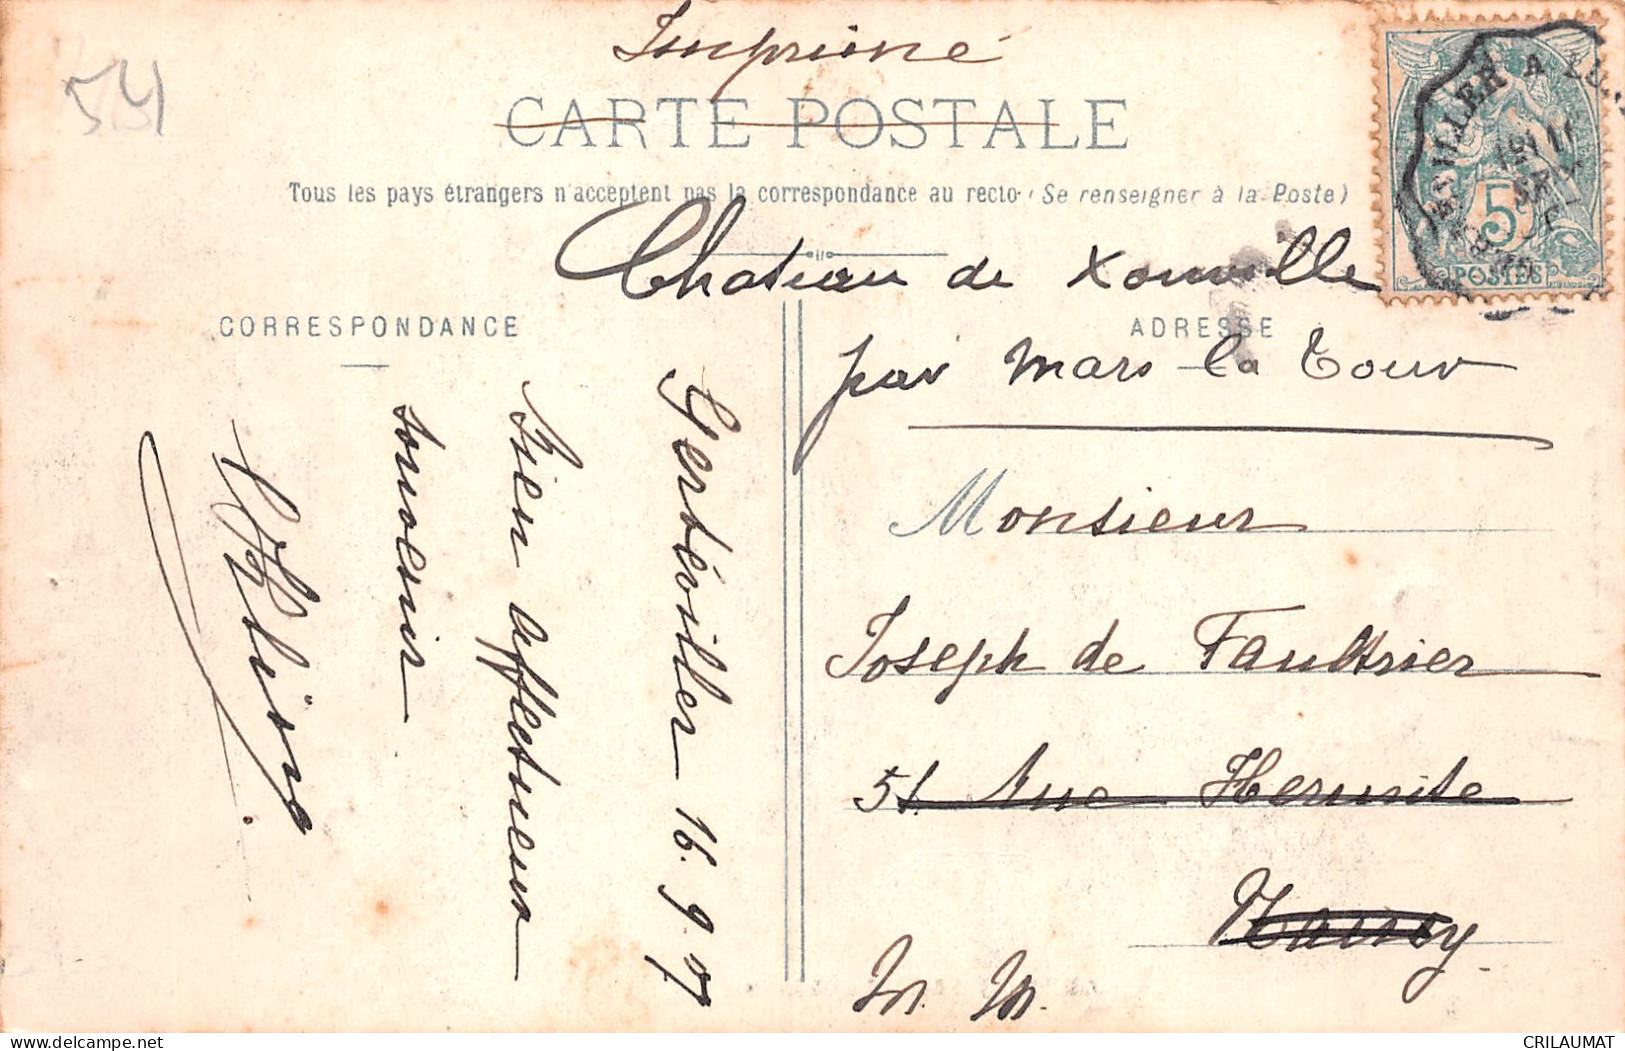 Imprimé
54
CARTE POSTALE
Tous les pays étrangers n'acceptent pas la correspondance au recto. (Se renseigner à la Poste)
Chateau de Xonville
par Mars la Tour
CORRESPONDANCE
ADRESSE
Gerbéviller 16.9.07
Bien affectueux
souvenir
Monsieur
Joseph de Faultrier
51 Rue Hermite
Nancy
M. M.
5
POSTES
CRILAUMAT